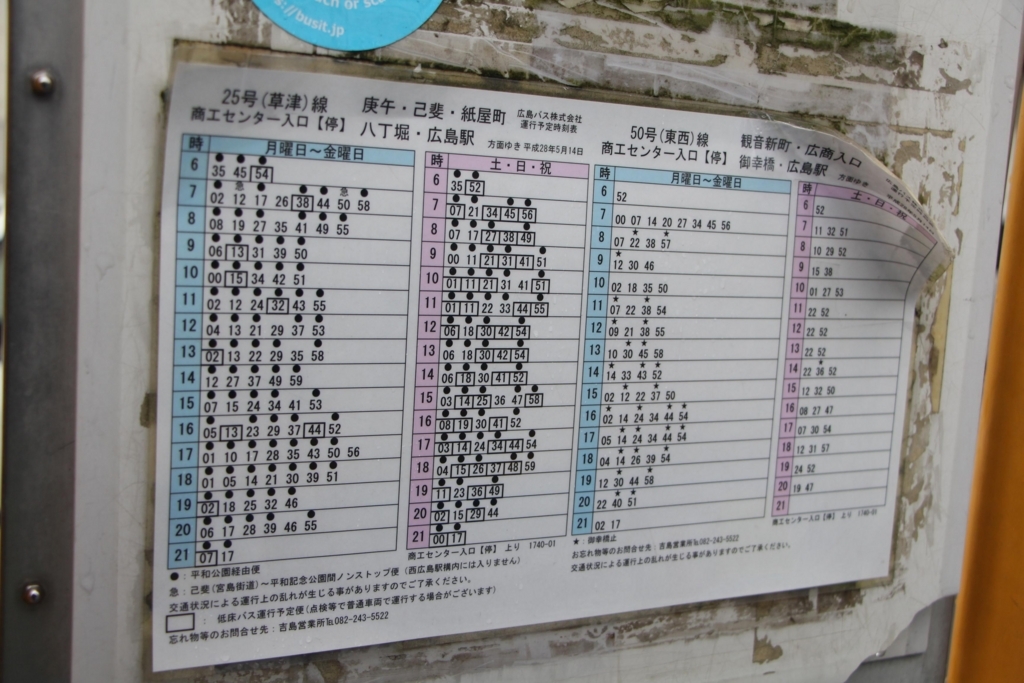 s://busit.jp
25号(草津)線　庚午・己斐・紙屋町　広島バス株式会社
運行予定時刻表
商工センター入口【停】　八丁堀・広島駅　方面ゆき 平成28年5月14日
時　月曜日～金曜日
6　35 45 54
7　急　急
02 12 17 26 38 44 50 58
8　08 19 27 35 41 49 55
9　06 13 31 39 50
10　00 15 34 42 51
11　02 12 24 32 43 55
12　04 13 21 29 37 53
13　02 13 22 29 35 58
14　12 27 37 49 59
15　07 15 24 34 41 53
16　05 13 23 29 37 44 52
17　01 10 17 28 35 43 50 56
18　01 05 14 21 30 39 51
19　02 18 25 32 46
20　06 17 28 39 46 55
21　07 17
時　土・日・祝
6　35 52
7　07 21 34 45 56
8　07 17 27 38 49
9　00 11 21 31 41 51
10　01 11 21 31 41 51
11　01 11 22 33 44 55
12　06 18 30 42 54
13　06 18 30 42 54
14　06 18 30 41 52
15　03 14 25 36 47 58
16　08 19 30 41 52
17　03 14 24 34 44 54
18　04 15 26 37 48 59
19　11 23 36 49
20　02 15 29 44
21　00 17
商工センター入口【停】 上り 1740-01
●：平和公園経由便
急：己斐(宮島街道)～平和記念公園間ノンストップ便（西広島駅構内には入りません）
交通状況による運行上の乱れが生じる事がありますのでご了承ください。
：低床バス運行予定便(点検等で普通車両で運行する場合がございます)
忘れ物等のお問合せ先：吉島営業所℡082-243-5522
50号(東西)線　観音新町・広商入口
商工センター入口【停】　御幸橋・広島駅　方面ゆき
時　月曜日～金曜日
6　52
7　00 07 14 20 27 34 45 56
8　07 22 38 57
9　12 30 46
10　02 18 35 50
11　07 22 38 54
12　09 21 38 55
13　10 30 45 58
14　14 33 43 52
15　02 12 22 37 50
16　02 14 24 34 44 54
17　05 14 24 34 44 54
18　04 14 26 39 54
19　12 30 44 58
20　22 40 51
21　02 17
時　土・日・祝
6　52
7　11 32 51
8　10 29 52
9　15 38
10　01 27 53
11　22 52
12　22 52
13　22 52
14　22 36 52
15　12 32 50
16　08 27 47
17　07 30 54
18　12 31 57
19　24 52
20　19 47
21
商工センター入口【停】 上り 1740-01
★：御幸橋止
お忘れ物等のお問合せ先：吉島営業所℡082-243-5522
交通状況による運行上の乱れが生じる事がありますのでご了承ください。